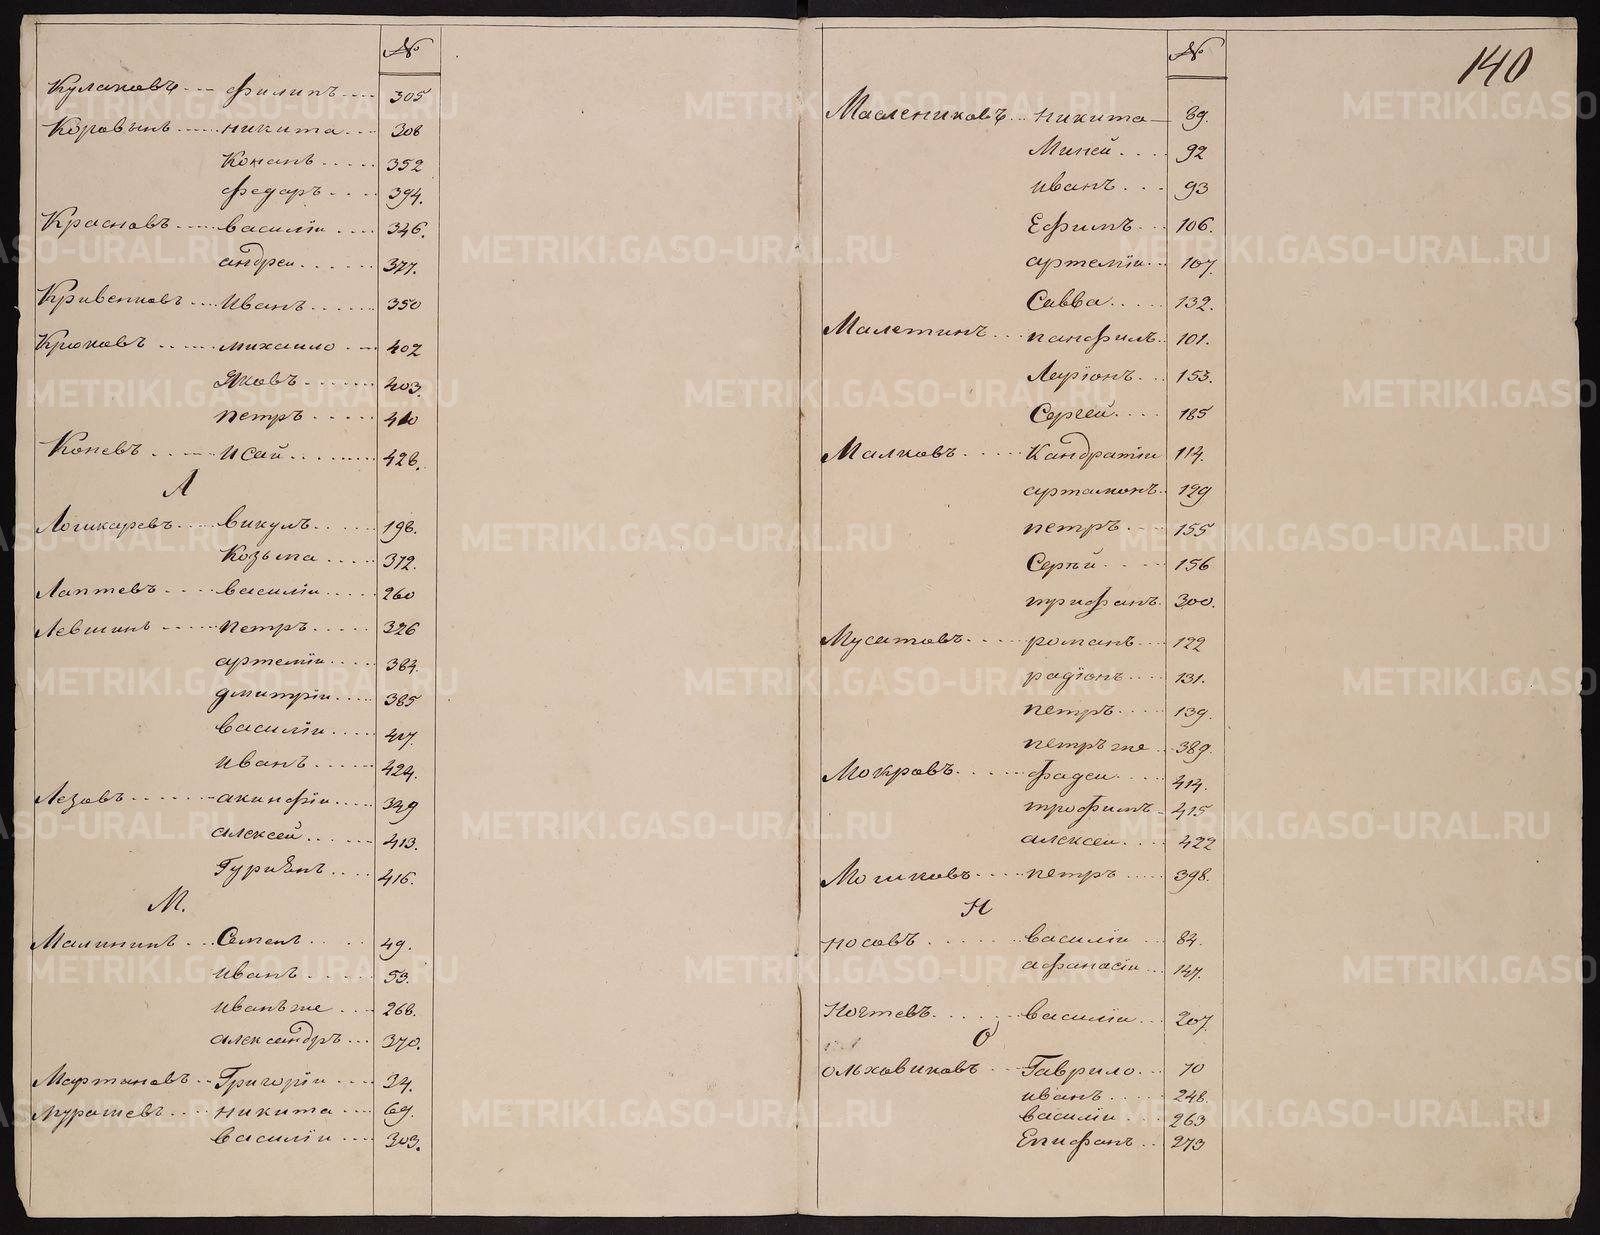 №
Кулаковъ --- филипъ 305
Коровынъ никита 308
Конанъ 352
федаръ 394.
Красновъ василiи 346.
андреи 377.
Кривенковъ Иванъ 350
Крюковъ михаило 402
Яковъ 403.
петръ 410
Копевъ исай 428.
Л
Логикаревъ викулъ 198.
Козьма 372.
Лаптевъ василiи 260
Левшинъ петръ 326
артемiи 384.
дмитрiи 385
василiи 417.
иванъ 424.
Лезовъ акинфiи 349
алексей 413.
Гуриянъ 416.
М.
Малининъ Семенъ 49.
иванъ 53.
иванъ же 268.
александръ 370.
Мартыновъ Григорiи 34.
Мурашевъ никита 69.
василiи 303.
№
140
Маслениковъ никита 89.
Миней 92
иванъ 93
Ефимъ 106.
артемiи 107
Савва 132.
Малетинъ панфилъ 101.
Ларiонъ 153.
Сергей 185
Малковъ Кандратiи 114.
артамонъ 129
петръ 155
Сергѣй 156
трифанъ 300.
Мусатовъ романъ 122
радiонъ 131.
петръ 139.
петръ же 389.
Мокровъ фадеи 414.
трофимъ 415
алексеи 422
Мошковъ петръ 398.
Н
носовъ василiи 84.
афанасiи 147.
Ногтевъ василiи 207.
О
ольховиковъ Гаврило 70
иванъ 248.
василiи 263
Епифанъ 273
METRIKI.GASO-URAL.RU